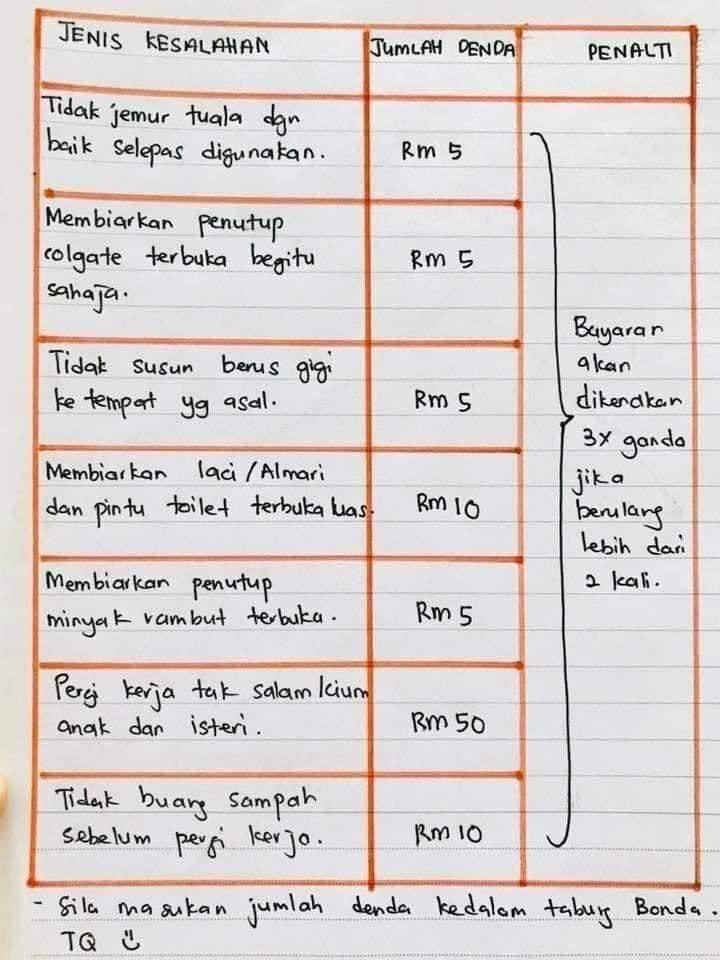 JENIS KESALAHAN
JUMLAH DENDA
PENALTI
Tidak jemur tuala dgn
baik selepas digunakan.
Rm 5
Membiarkan penutup
colgate terbuka begitu
sahaja.
Rm 5
Tidak susun berus gigi
ke tempat yg asal.
Rm 5
Membiarkan laci / Almari
dan pintu toilet terbuka luas.
Rm 10
Membiarkan penutup
minyak rambut terbuka.
Rm 5
Pergi kerja tak salam/cium
anak dan isteri.
Rm 50
Tidak buang sampah
sebelum pergi kerja.
Rm 10
Bayaran
akan
dikenakan
3x ganda
jika
berulang
lebih dari
2 kali.
- Sila masukan jumlah denda kedalam tabung Bonda.
TQ ☺